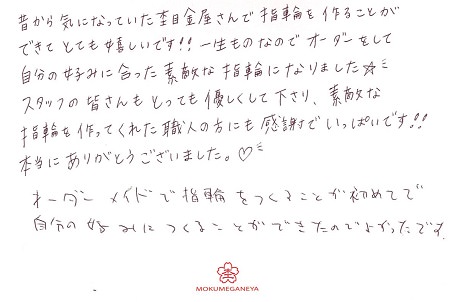 昔から気になっていた杢目金屋さんで指輪を作ることが
できてとても嬉しいです!!一生ものなのでオーダーをして
自分の好みに合った素敵な指輪になりました☆ミ
スタッフの皆さんもとっても優しくして下さり、素敵な
指輪を作ってくれた職人の方にも感謝でいっぱいです!!
本当にありがとうございました。♡
オーダーメイドで指輪をつくることが初めてで
自分の好みにつくることができたのでよかったです。
MOKUMEGANEYA